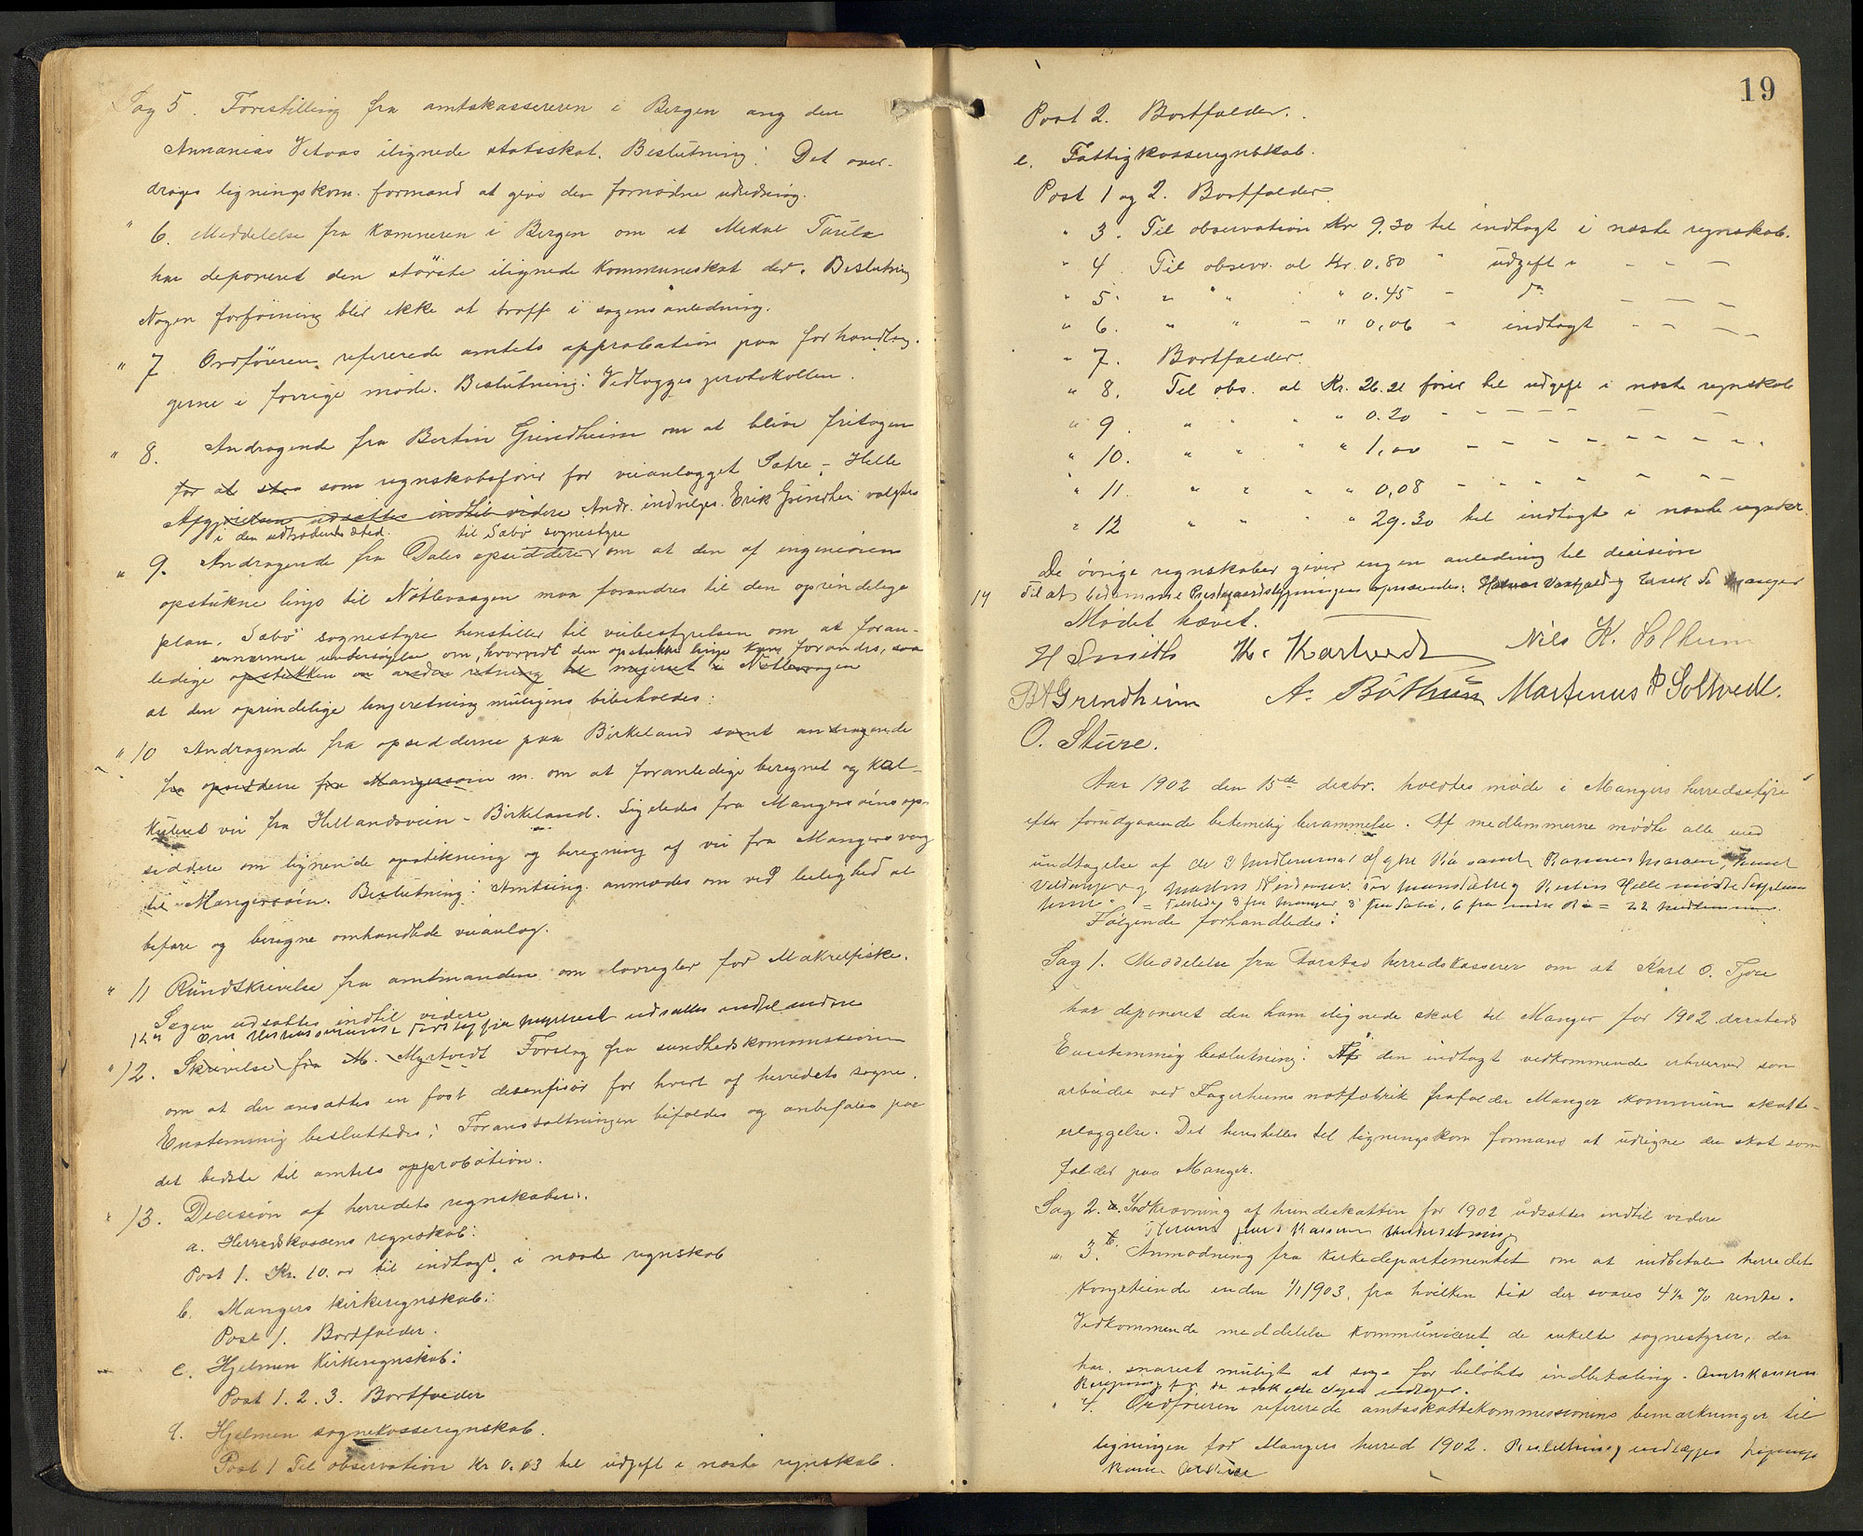 Sag 5. Forestilling fra amtskassereren i Bergen ang den
Annanias Vetaas ilignede statsskat. Beslutning: Det over-
drages ligningskom. formand at give den fornødne udredning.
" 6. Meddelelse fra Kæmneren i Bergen om at
har deponeret den største ilignede Kommuneskat der. Beslutning
Nogen forføining blir ikke at træffe i sagens anledning.
" 7. Ordføreren refererede amtets approbation paa forhandlin-
gerne i forrige møde. Beslutning: Vedlægges protokollen.
" 8. Andragende fra Bertin Grindheim om at blive fritagen
for at staa som regnskabsfører for veianlægget Sætre - Helle
Afgjørelsen udsættes indtil videre Andr. indvilges. Erik Grindhei valgtes
i den udtrædendes sted. til Sæbø sognestyre
" 9. Andragende fra Dales opsiddere om at den af ingeniøren
opstukne linje til Nøtlevaagen maa forandres til den oprindelige
plan. Sæbø sognestyre henstiller til veibestyrelsen om at foran-
en nærmere undersøgelse om, hvorvidt den opstukne linje kan forandres, saa
ledige opstukken en anden retning til i Nøtlevaagen
at den oprindelige linjeretning muligens bibeholdes:
" 10 Andragende fra opsidderne paa Birkeland samt andragende
fra opsiddere fra Mangersøien m. om at foranledige beregnet og kal-
kuleret vei fra Hellandsveien - Birkeland. Ligeledes fra Mangersøiens op-
siddere om lignende opstikning og beregning af vei fra Mangers vaag
til Mangersøien. Beslutning: Amtsing. anmodes om ved leilighed at
befare og beregne omhandlede veianlæg.
" 11 Rundskrivelse fra amtmanden om lovregler for Makrelfiske.
Sagen udsættes indtil videre
udsættes indtil videre
" 12. Skrivelse fra M. Myrtvedt Forslag fra sundhedskommissionen
om at der ansættes en fast desinfisør for hvert af herredets sogne.
Enstemmig besluttedes: Foranstaltningen bifaldes og anbefales paa
det bedste til amtets approbation.
" 13. Decision af herredets regnskaber:
a. Herredskassens regnskab:
Post 1. Kr. 10.00 til indtægt i næste regnskab
b. Mangers kirkeregnskab:
Post 1. Bortfalder.
c. Hjelmen Kirkeregnskab:
Post 1. 2. 3. Bortfalder
d. Hjelmen sognekasseregnskab.
Post 1 Til observation Kr 0.03 til udgift i næste regnskab.
19
Post 2. Bortfalder.
e. Fattigkasseregnskab.
Post 1 og 2. Bortfalder
" 3. Til observation Kr 9.30 til indtægt i næste regnskab.
" 4. Til observ. at Kr. 0.80 " udgift i - - -
" 5. " " " " 0.45 - do - - -
" 6. " " - " 0,06 - indtægt - - -
" 7. Bortfalder
" 8. Til obs. at Kr. 26.21 føres til udgift i næste regnskab
" 9. " " " " 0.20 - - - - - - -
" 10. " " " " 1,00 - - - - - - - -
" 11. " " " " 0,08 - - - - - - -
" 12 " " " " 29.30 til indtægt i næste regnskr.
De øvrige regnskaber giver ingen anledning til decision
14 Til at bedømme opnævnes: og
Mødet hævet.
H Smith K. Kartvedt Nils K. Solheim
BA Grindheim A. Bøthun Martinus P Soltvedt.
O. Sture.
Aar 1902 den 15de decbr. holdtes møde i Mangers herredsstyre
efter forudgaaende betimelig berammelse. Af medlemmerne mødte alle med
undtagelse af de 3 medlemmer af samt Rasmus
og Helle mødte
= Tilstede 9 fra Manger 3 fra Sæbø, 6 fra = 22 medlemmer.
Følgende forhandledes:
Sag 1. Meddelelse fra herredskasserer om at Karl O.
har deponeret den ham ilignede skat til Manger for 1902 dersteds
Enstemmig beslutning: Af den indtægt vedkommende erhverver som
arbeider ved Fagerheims notfabrik frafalder Manger Kommune skatte-
erlæggelse. Det henstilles til ligningskom formand at udregne den skat som
falder paa Manger.
Sag 2. a. Indkrævning af hundeskatten for 1902 udsættes indtil videre
b.
" 3. Anmodning fra kirkedepartementet om at indbetale herredets
Kongetiende inden 1/1 1903, fra hvilken tid der svares 4½ % rente.
Vedkommende meddelelse kommuniceret de enkelte sognestyrer, der
har snarest muligt at søge for beløbets indbetaling. Amtskasseren
de enkelte sogne indtages.
" 4. Ordføreren refererede amtsskattekommissionens bemærkninger til
ligningen for Mangers herred 1902. Beslutning vedlægges